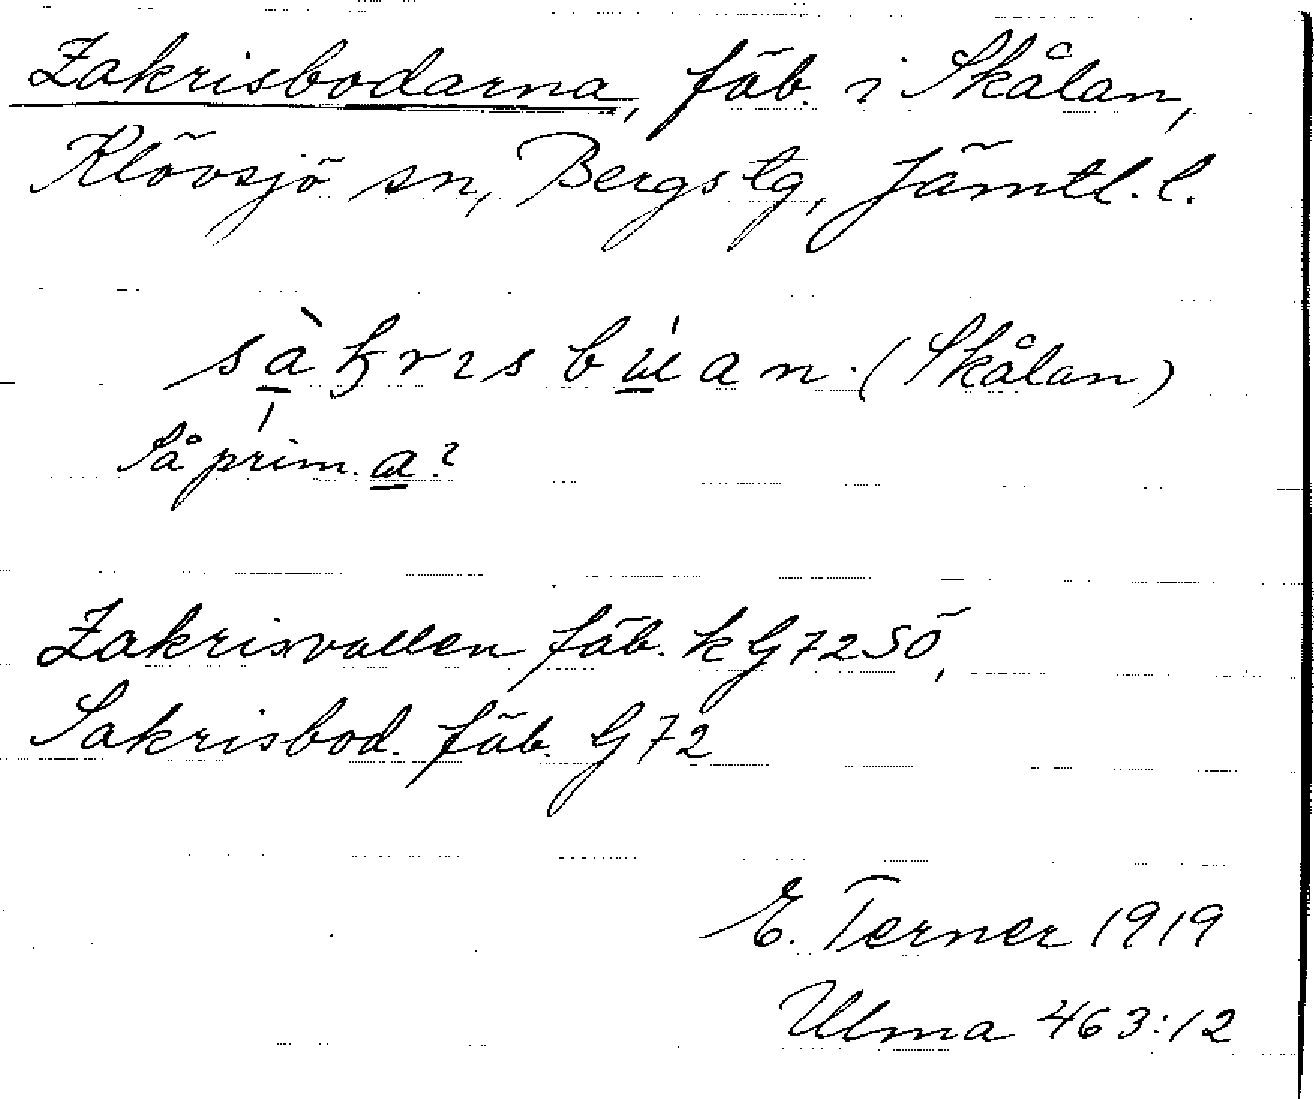 Zakrisbodarna, fäb. i Skålan,
Klövsjö sn, Bergs tg, Jämtl. l.
sàkrɩs búan. (Skålan)
Så prim. a?
Zakrisvallen fäb. k G72SÖ,
Sakrisbod. fäb. G72
E. Terner 1919
Ulma 463:12